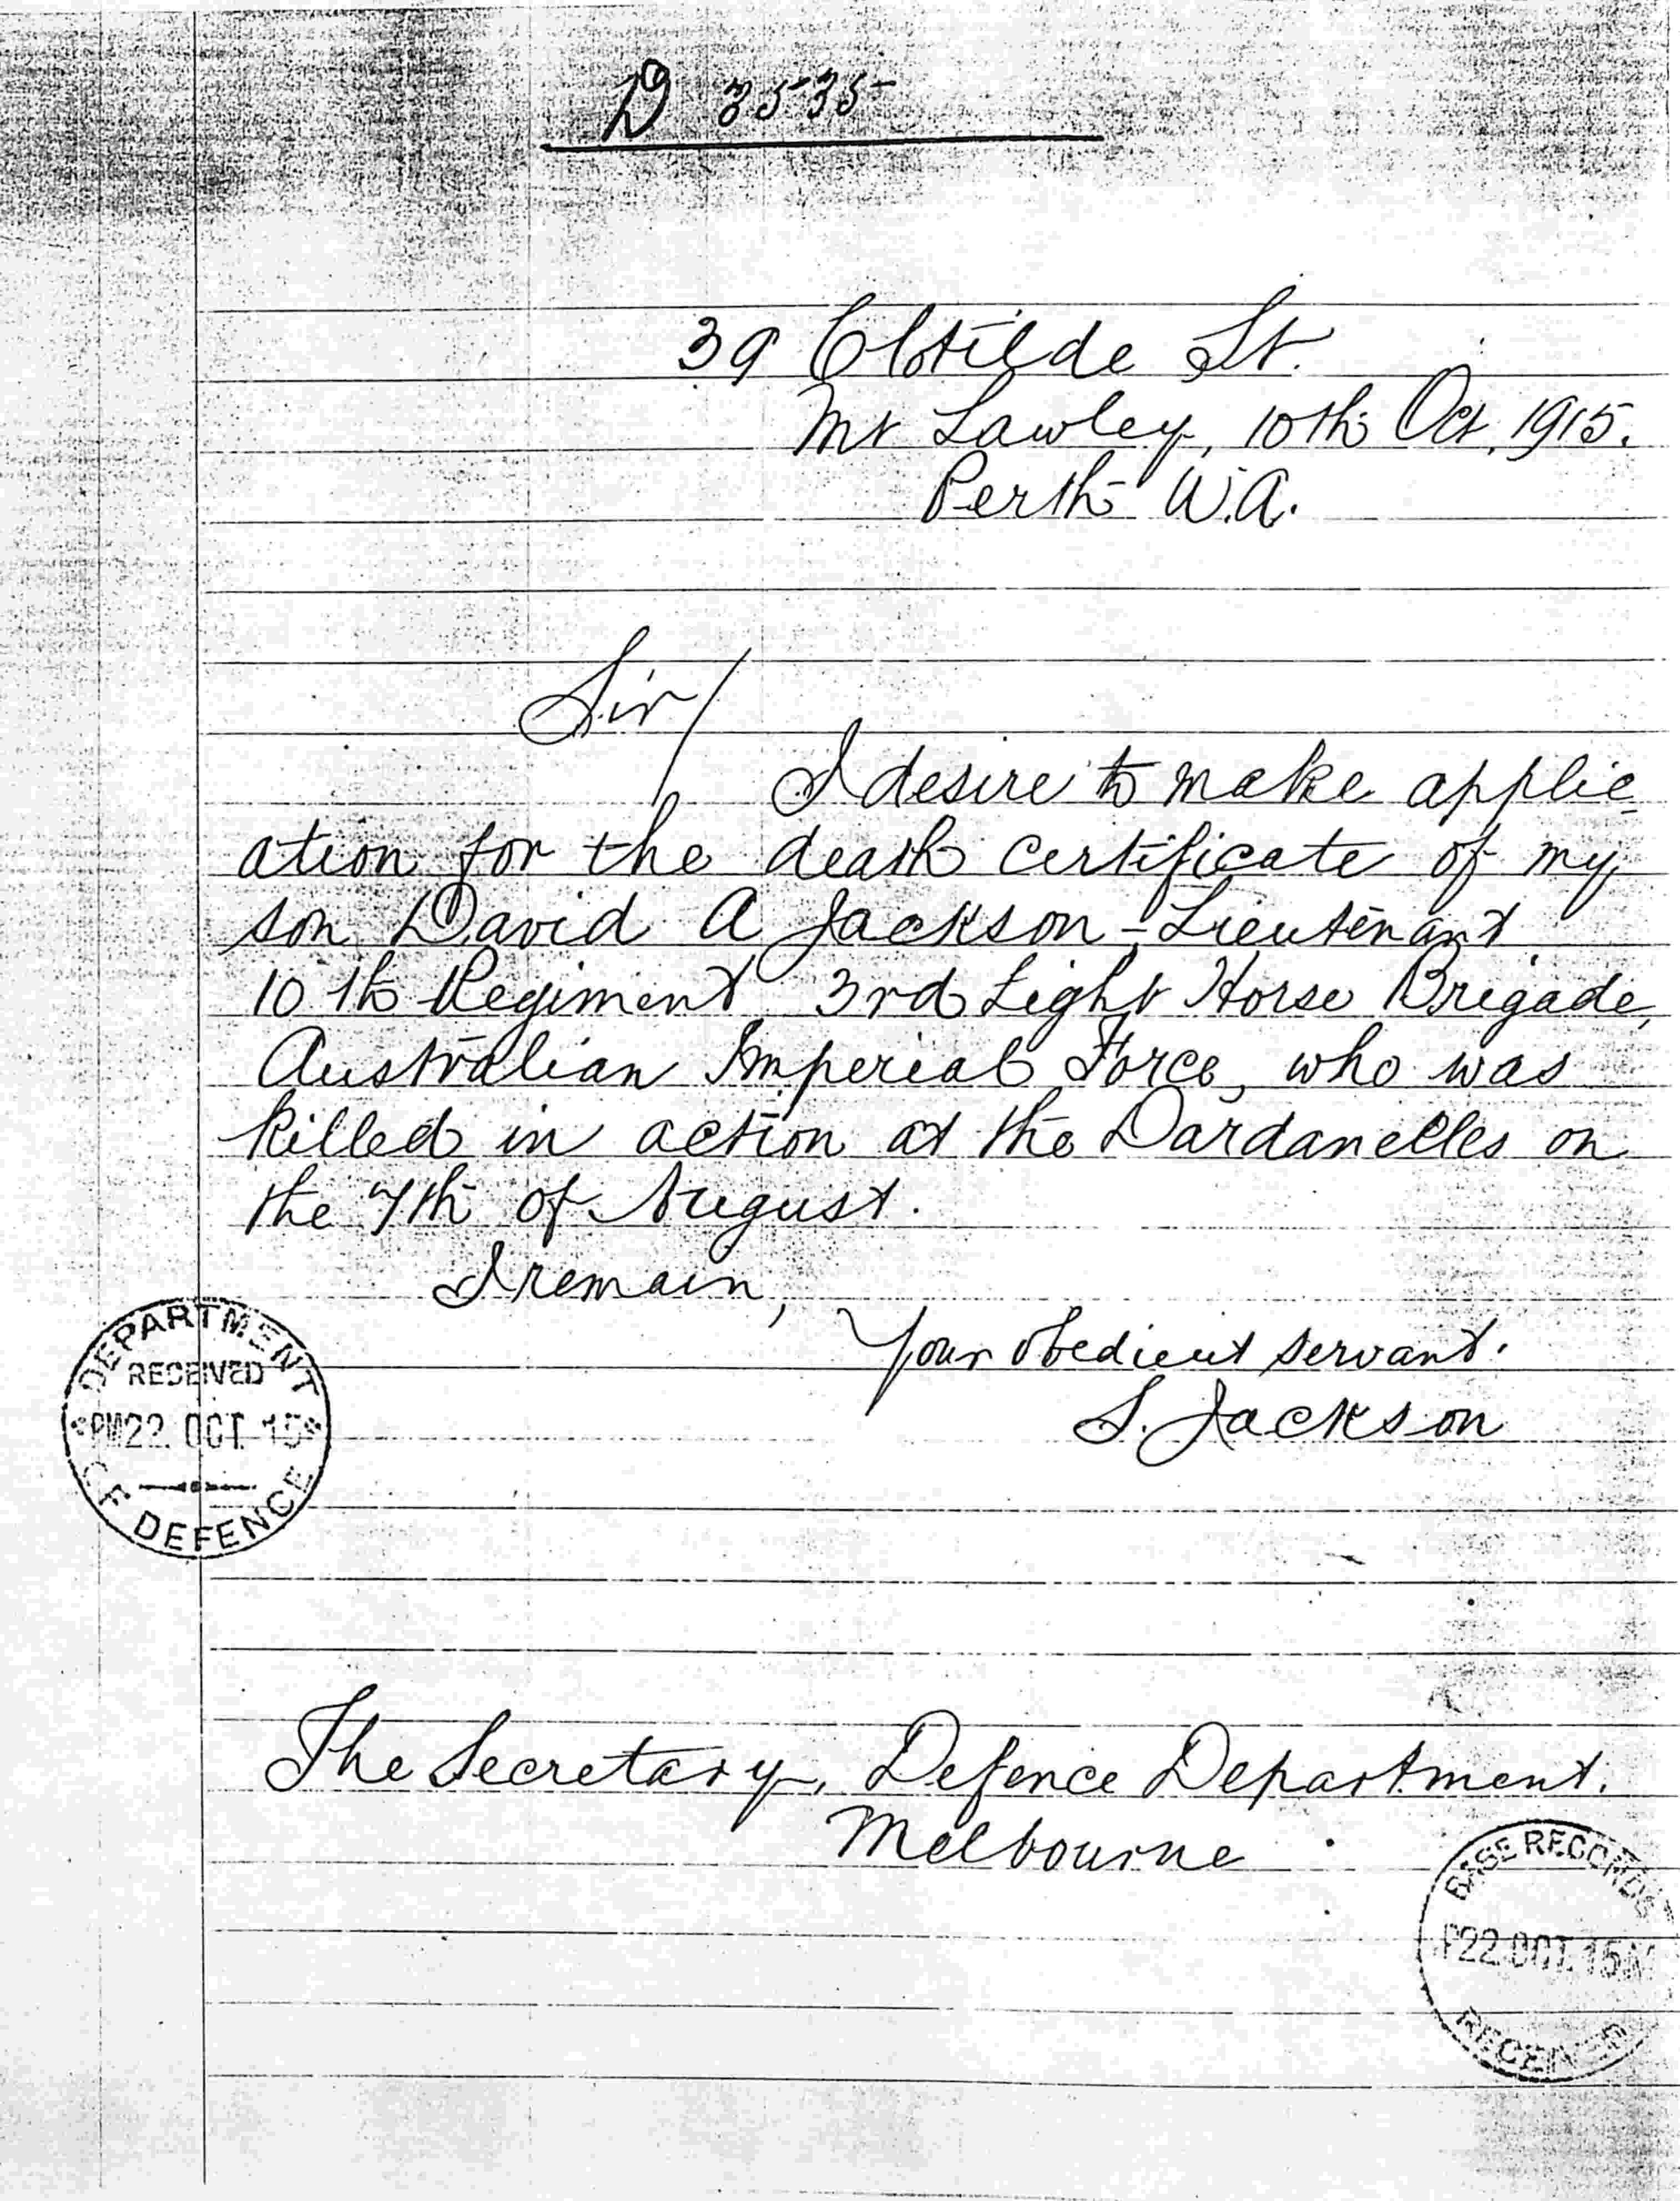 D 3535
39 Clotilde St.
Mt Lawley, 10th Oct. 1915.
Perth W.A.
Sir/
I desire to make applic=
ation for the death certificate of my
son David A Jackson - Lieutenant
10th Regiment 3rd Light Horse Brigade,
Australian Imperial Force, who was
killed in action at the Dardanelles on
the 7th of August.
I remain,
Your obedient servant.
S. Jackson
DEPARTMENT
RECEIVED
PM 22. OCT. 15
OF DEFENCE
The Secretary, Defence Department.
Melbourne
BASE RECORDS
P 22. OCT. 15 M
RECEIVED